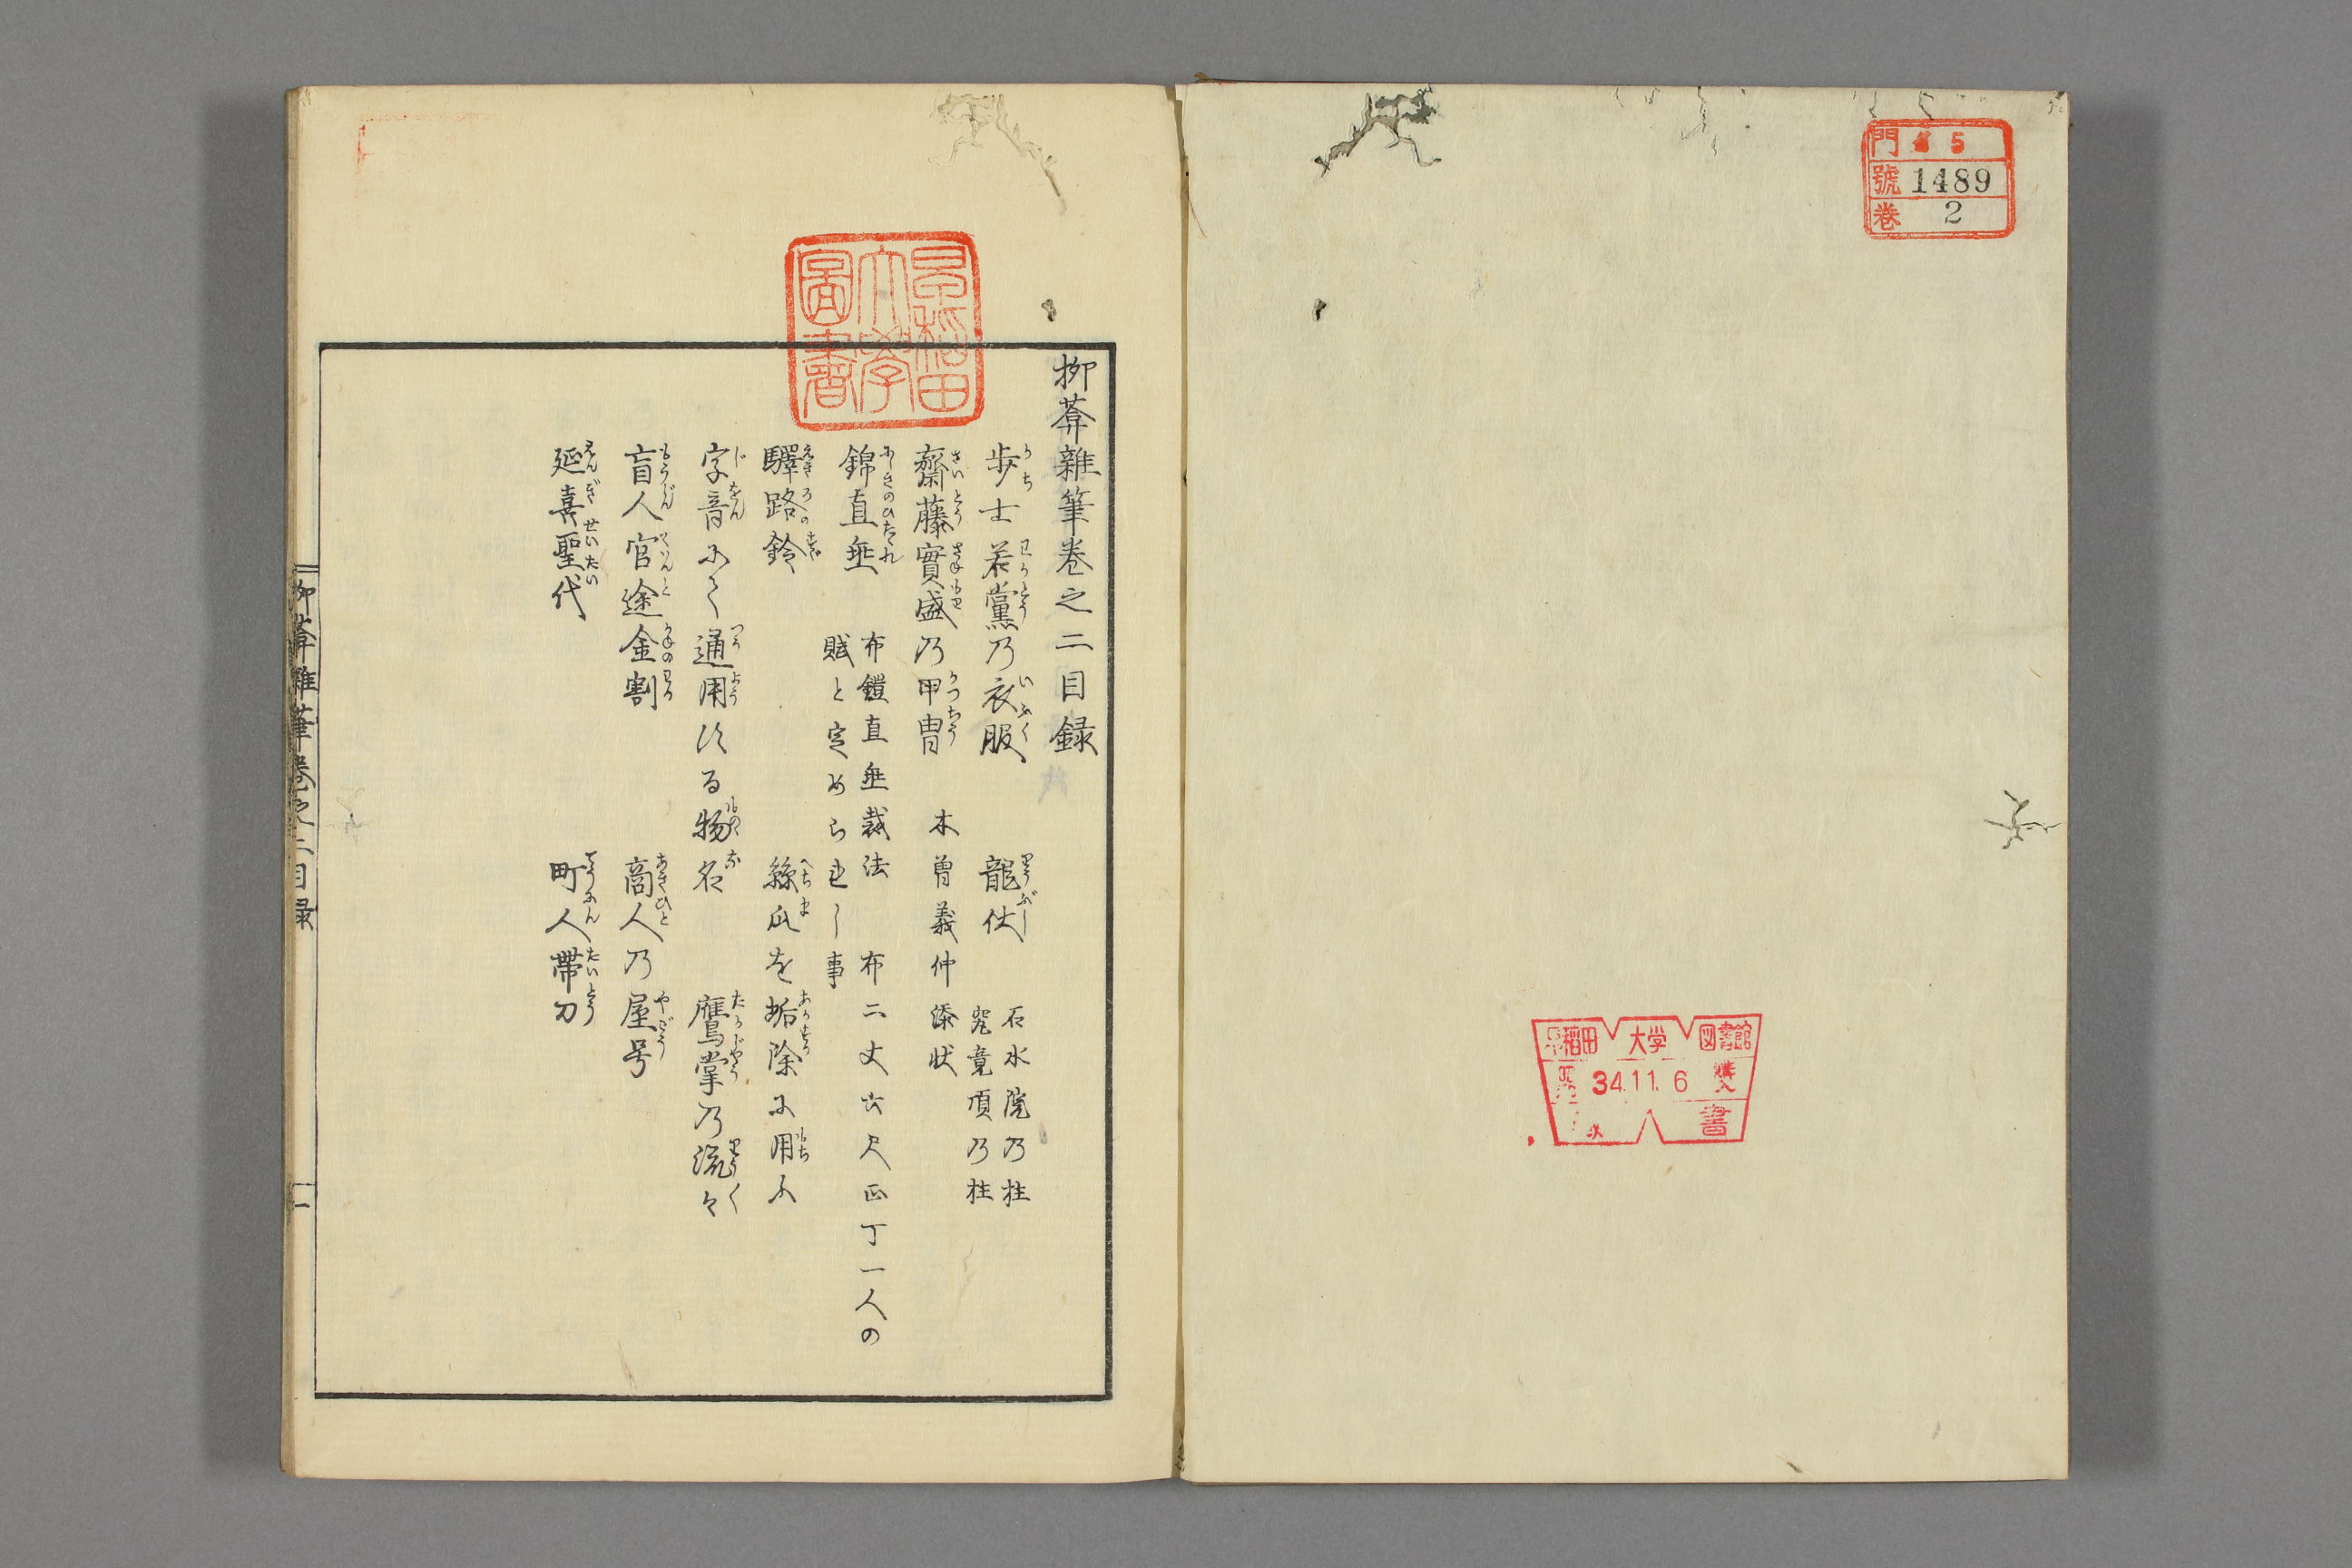 門 45
號 1489
巻 2
早稲田 大学 図書館
34.11.6 購入
書
早稲田大學圖書
柳葊雜筆卷之二目録
歩士若黨乃衣服 龍伏 石水院乃柱
究竟頂乃柱
齋藤實盛乃甲冑 木曽義仲添状
錦直垂 布鎧直垂裁法 布二丈六尺正丁一人の
賦と定められし事
驛路鈴 絲瓜を垢除に用ふ
字音にて通用する物名 鷹掌乃流々
盲人官途金割 商人乃屋号
延喜聖代 町人帯刀
柳葊雜筆卷之二目录 一